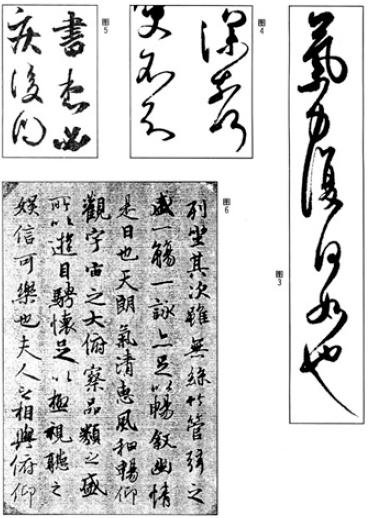 氣力復何如也
图3
图4
書想必
图5
图6
列坐其次雖無絲竹管弦之
盛一觴一詠亦足以暢敘幽情
是日也天朗氣清惠風和暢仰
觀宇宙之大俯察品類之盛
所以遊目騁懷足以極視聽之
娛信可樂也夫人之相與俯仰